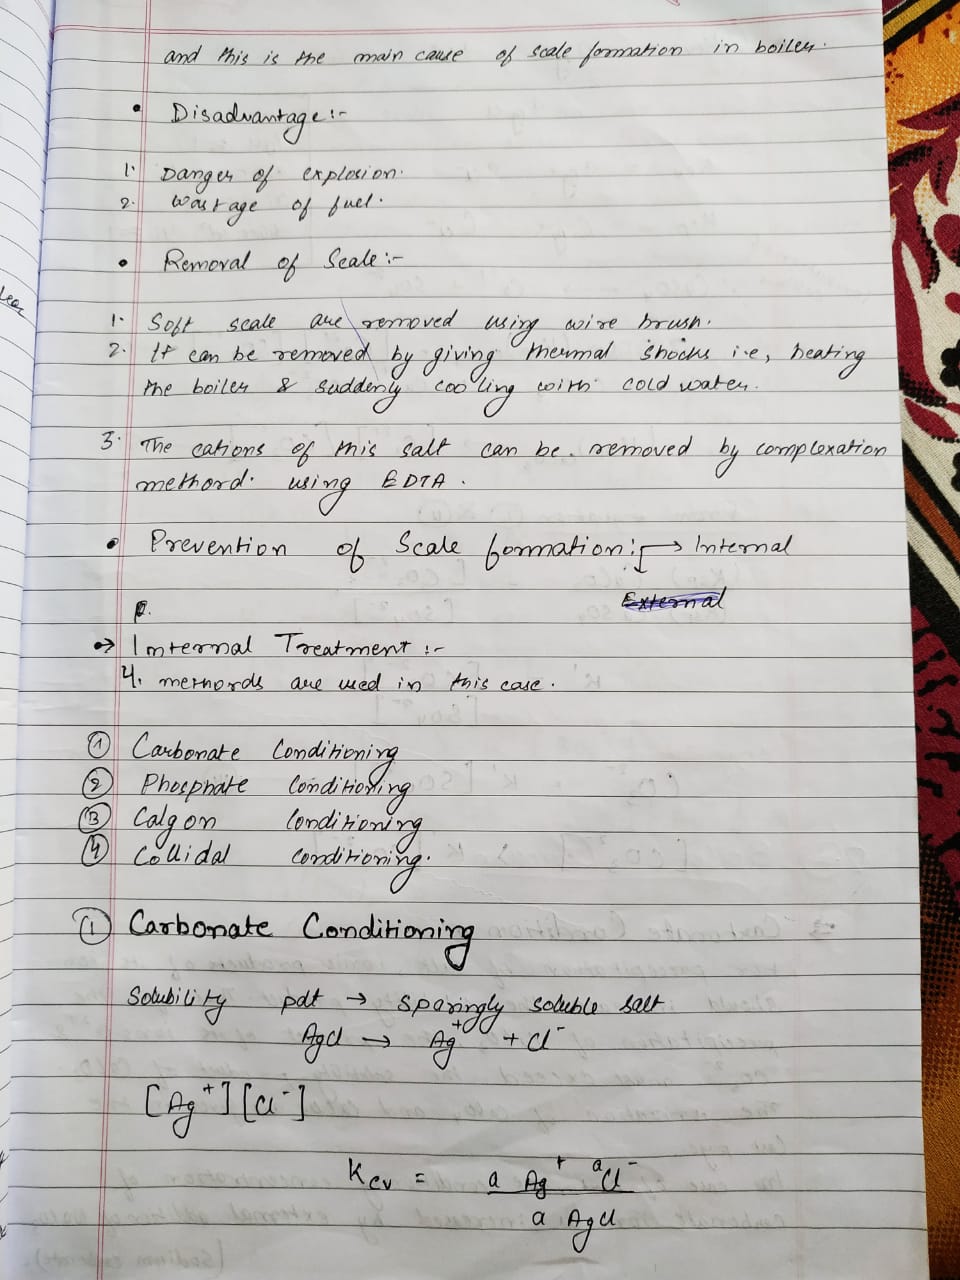 and this is the main cause of scale formation in boiler.
• Disadvantage :-
1. Danger of explosion.
2. Wastage of fuel.
• Removal of Scale :-
1. Soft scale are removed using wire brush.
2. It can be removed by giving thermal shocks i.e, heating
the boiler & suddenly cooling with cold water.
3. The cations of this salt can be removed by complexation
methord. using EDTA.
• Prevention of Scale formation: → Internal
External
→ Internal Treatment :-
4. methords are used in this case.
① Carbonate Conditioning
② Phosphate Conditioning
③ Calgon Conditioning
④ Collidal Conditioning.
① Carbonate Conditioning
Solubility pdt → sparingly soluble salt
AgCl → Ag⁺ + Cl⁻
[Ag⁺][Cl⁻]
a Ag⁺ a Cl⁻
K =
a AgCl